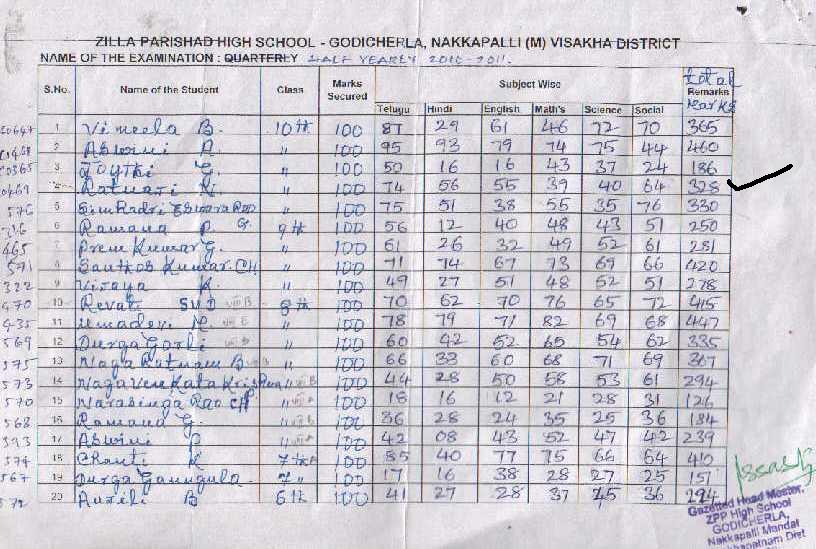 ZILLA PARISHAD HIGH SCHOOL - GODICHERLA, NAKKAPALLI (M) VISAKHA DISTRICT
NAME OF THE EXAMINATION : QUARTERLY HALF YEARLY 2010-2011.
S.No. Name of the Student Class Marks Secured Subject Wise total Remarks Marks
Telugu Hindi English Math's Science Social
1 Vimeela B. 10th 100 87 29 61 46 72 70 365
2 Aswini P. " 100 95 93 79 74 75 44 460
3 Joythi G. " 100 50 16 16 43 37 24 186
4 Ratnari K. " 100 74 56 55 39 40 64 328
576 5 Simhadri Eswara Rao " 100 75 51 38 55 35 76 330
6 Ramana P. G. 9th 100 56 12 40 48 43 51 250
465 7 Prem Kumar G. " 100 61 26 32 49 52 61 281
591 8 Santhos Kumar. CH " 100 71 74 67 73 69 66 420
322 9 Vijaya K. " 100 49 27 51 48 52 51 278
470 10 Revati SVD VIII B 8th 100 70 62 70 76 65 72 415
435 11 Umadevi M. VIII B " 100 78 79 71 82 69 68 447
569 12 Durga Gorli VIII B " 100 60 42 52 65 54 62 335
575 13 Naga Ratnam B VIII B " 100 66 33 60 68 71 69 367
573 14 Naga Venkata Krishna " VII B 100 44 28 50 58 53 61 294
570 15 Narasinga Rao CH " VII A 100 18 16 12 21 28 31 126
568 16 Ramana G. " VII A 100 36 28 24 35 25 36 184
593 17 Aswini P " VII A 100 42 08 43 52 47 42 239
574 18 Chanti K 7th A 100 85 40 77 75 66 64 410
567 19 Durga Gannugula 7 " 100 17 16 38 28 27 25 151
572 20 B 6th 100 41 27 28 37 45 36
Gazetted Head Master,
ZPP High School
GODICHERLA,
Nakkapalli Mandal